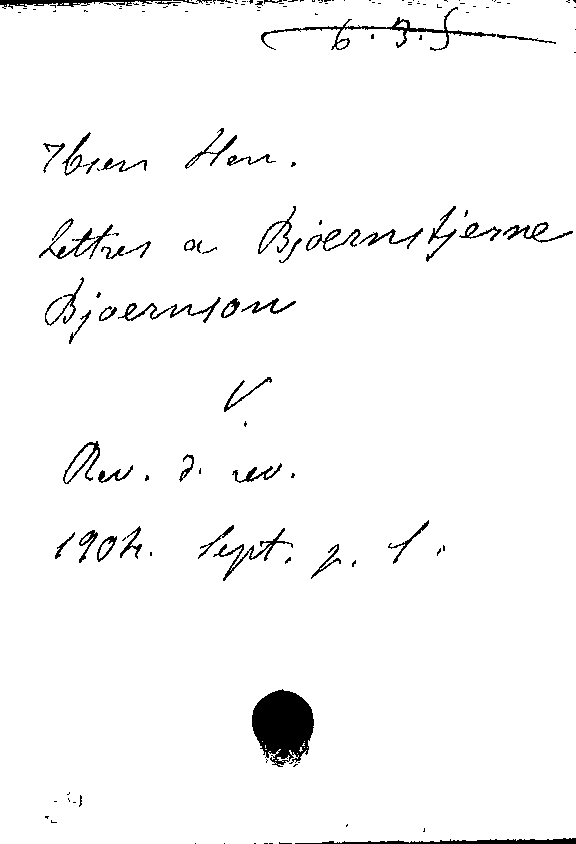 6.3.5
Ibsen Hen.
Lettres a Bjoernstjerne
Bjoernson
V.
Rev. d. rev.
1904. Sept. p. 1.